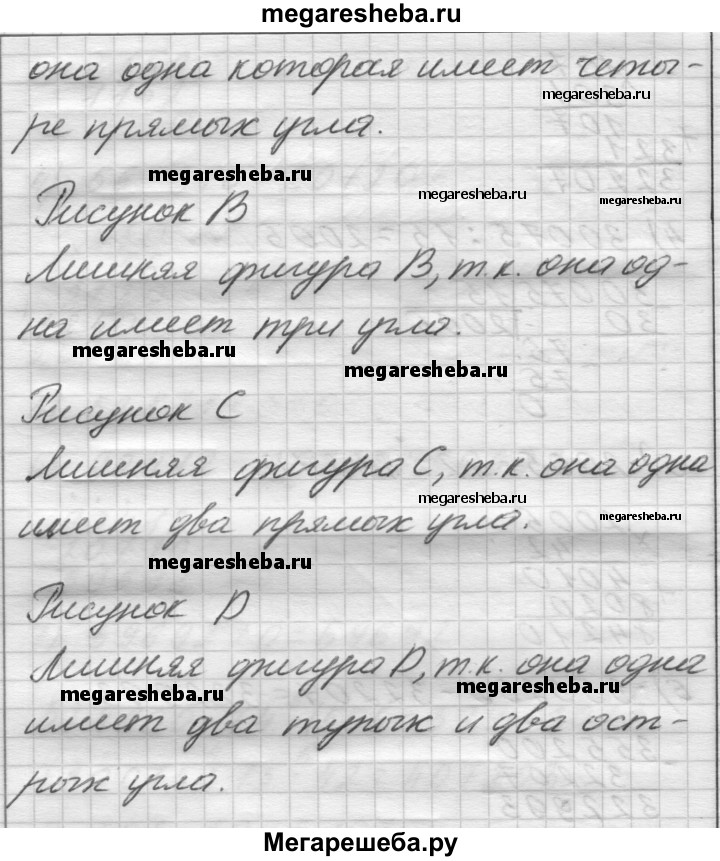 megaresheba.ru
она одна которая имеет четы-
megaresheba.ru
ре прямых угла.
megaresheba.ru
megaresheba.ru
megaresheba.ru
Рисунок В
Лишняя фигура В, т.к. она од-
на имеет три угла.
megaresheba.ru
megaresheba.ru
Рисунок С
Лишняя фигура С, т.к. она одна
megaresheba.ru
имеет два прямых угла.
megaresheba.ru
megaresheba.ru
Рисунок D
Лишняя фигура D, т.к. она одна
megaresheba.ru
megaresheba.ru
имеет два тупых и два ост-
рых угла.
Мегарешеба.ру